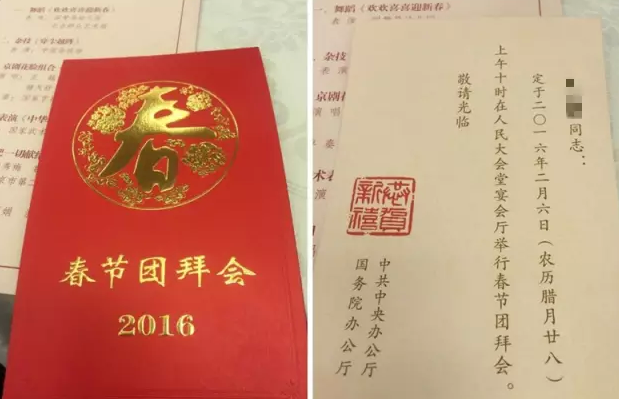 一、舞蹈《欢欢喜喜迎新春》
二、杂技
京剧花脸组合
春
春节团拜会
2016
一、舞蹈《欢欢喜喜迎新春》
杂技
京剧
同志：
定于二〇一六年二月六日（农历腊月廿八）
上午十时在人民大会堂宴会厅举行春节团拜会。
敬请光临
恭贺新禧
中共中央办公厅
国务院办公厅